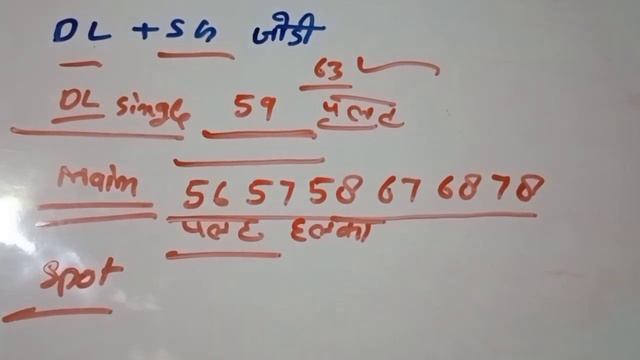 DL + SG जोडी
63
DL single 59 पलट
Main 56 57 58 67 68 78
पलट हलका
Spot